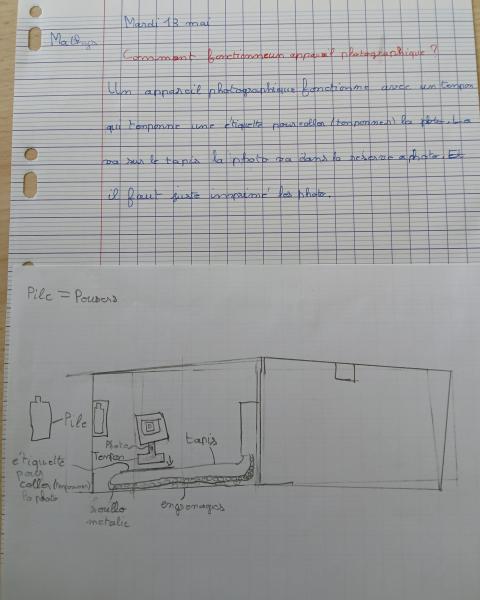 Mardi 13 mai
Mathys
Comment fonctionne un appareil photographique ?
Un appareil photographique fonctionne avec un tempon
qui temponne une étiquette pour coller (temponner) la photo. La
va sur le tapis la photo va dans la reserve a photo. Et
il faut juste imprimé les photo.
Pile = Pousers
Pile
Photo
Tempon
tapis
étiquette
pour
coller (temponner)
la photo
roullo
metalic
engronages